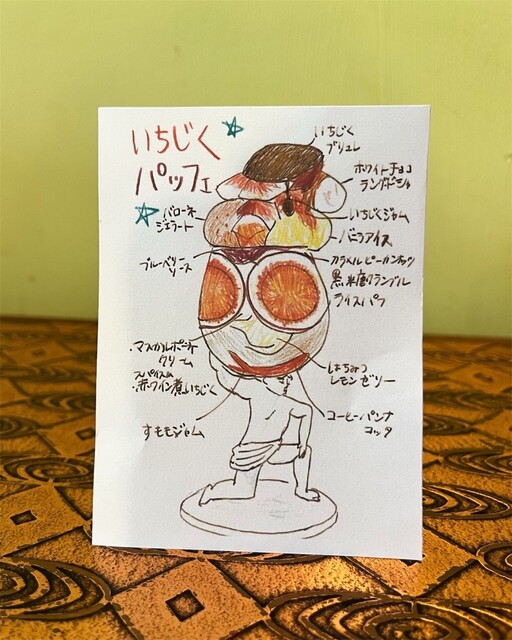 いちじく
パッフェ
いちじく
ブリュレ
ホワイトチョコ
ラングドシャ
バローネ
ジェラート
いちじくジャム
バニラアイス
ブルーベリー
ソース
カラメルピーカンナッツ
黒米磨クランブル
ライスパフ
マスカルポーネ
クリーム
スパイスの
赤ワイン煮いちじく
はちみつ
レモンゼリー
コーヒーパンナ
コッタ
すももジャム